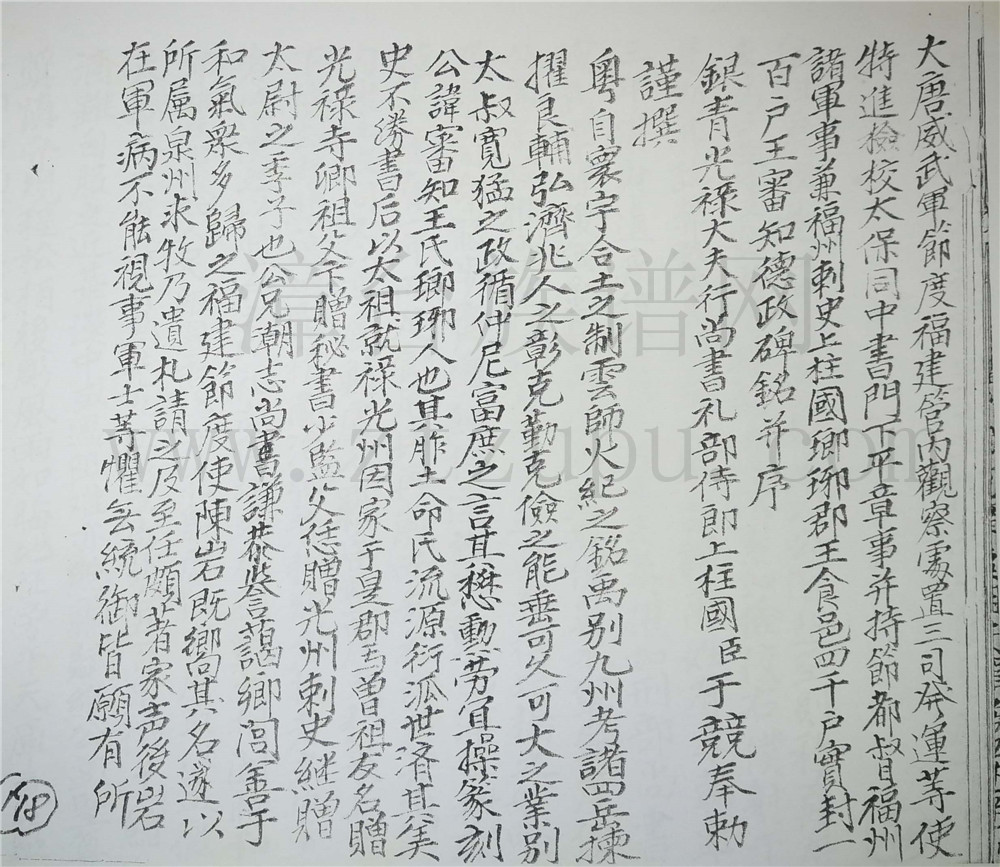 大唐威武軍節度福建管內觀察處置三司發運等使
特進檢校太保同中書門下平章事并持節都督福州
諸軍事兼福州刺史上柱國瑯琊郡王食邑四千戶實封一
百戶王審知德政碑銘并序
銀青光祿大夫行尚書礼部侍郎上柱國臣于競奉勅
謹撰
粵自寰宇合土之制雲師火紀之銘禹別九州考諸四岳揀
擢良輔弘濟兆人之彰克勤克儉之能垂可久可大之業別
太叔寬猛之政循仲尼富庶之言其懋勳勞宜操篆刻
公諱審知王氏瑯琊人也其胙土命民流源衍派世濟其美
史不勝書后以太祖就祿光州因家于是郡焉曾祖友名贈
光祿寺卿祖父玉贈秘書少監父恁贈光州刺史継贈
太尉之季子也公兄朝志尚書謙恭譽藹鄉閭善于
和氣衆多歸之福建節度使陳岩既嚮其名遂以
所属泉州求牧乃遺札請之及至任頗著家声後岩
在軍病不能視事軍士等懼無統御皆願有所
118
漳州族谱网
www.zzzupu.com